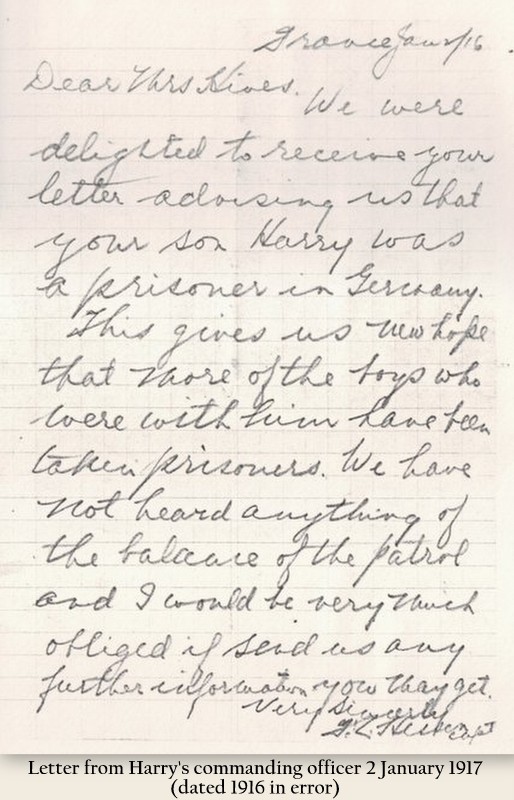 France Jan 2/16
Dear Mrs Hives.
We were
delighted to receive your
letter advising us that
your son Harry was
a prisoner in Germany.
This gives us new hope
that more of the boys who
were with him have been
taken prisoners. We have
not heard anything of
the balance of the patrol
and I would be very much
obliged if send us any
further information you may get.
Very Sincerely
Capt
Letter from Harry's commanding officer 2 January 1917
(dated 1916 in error)